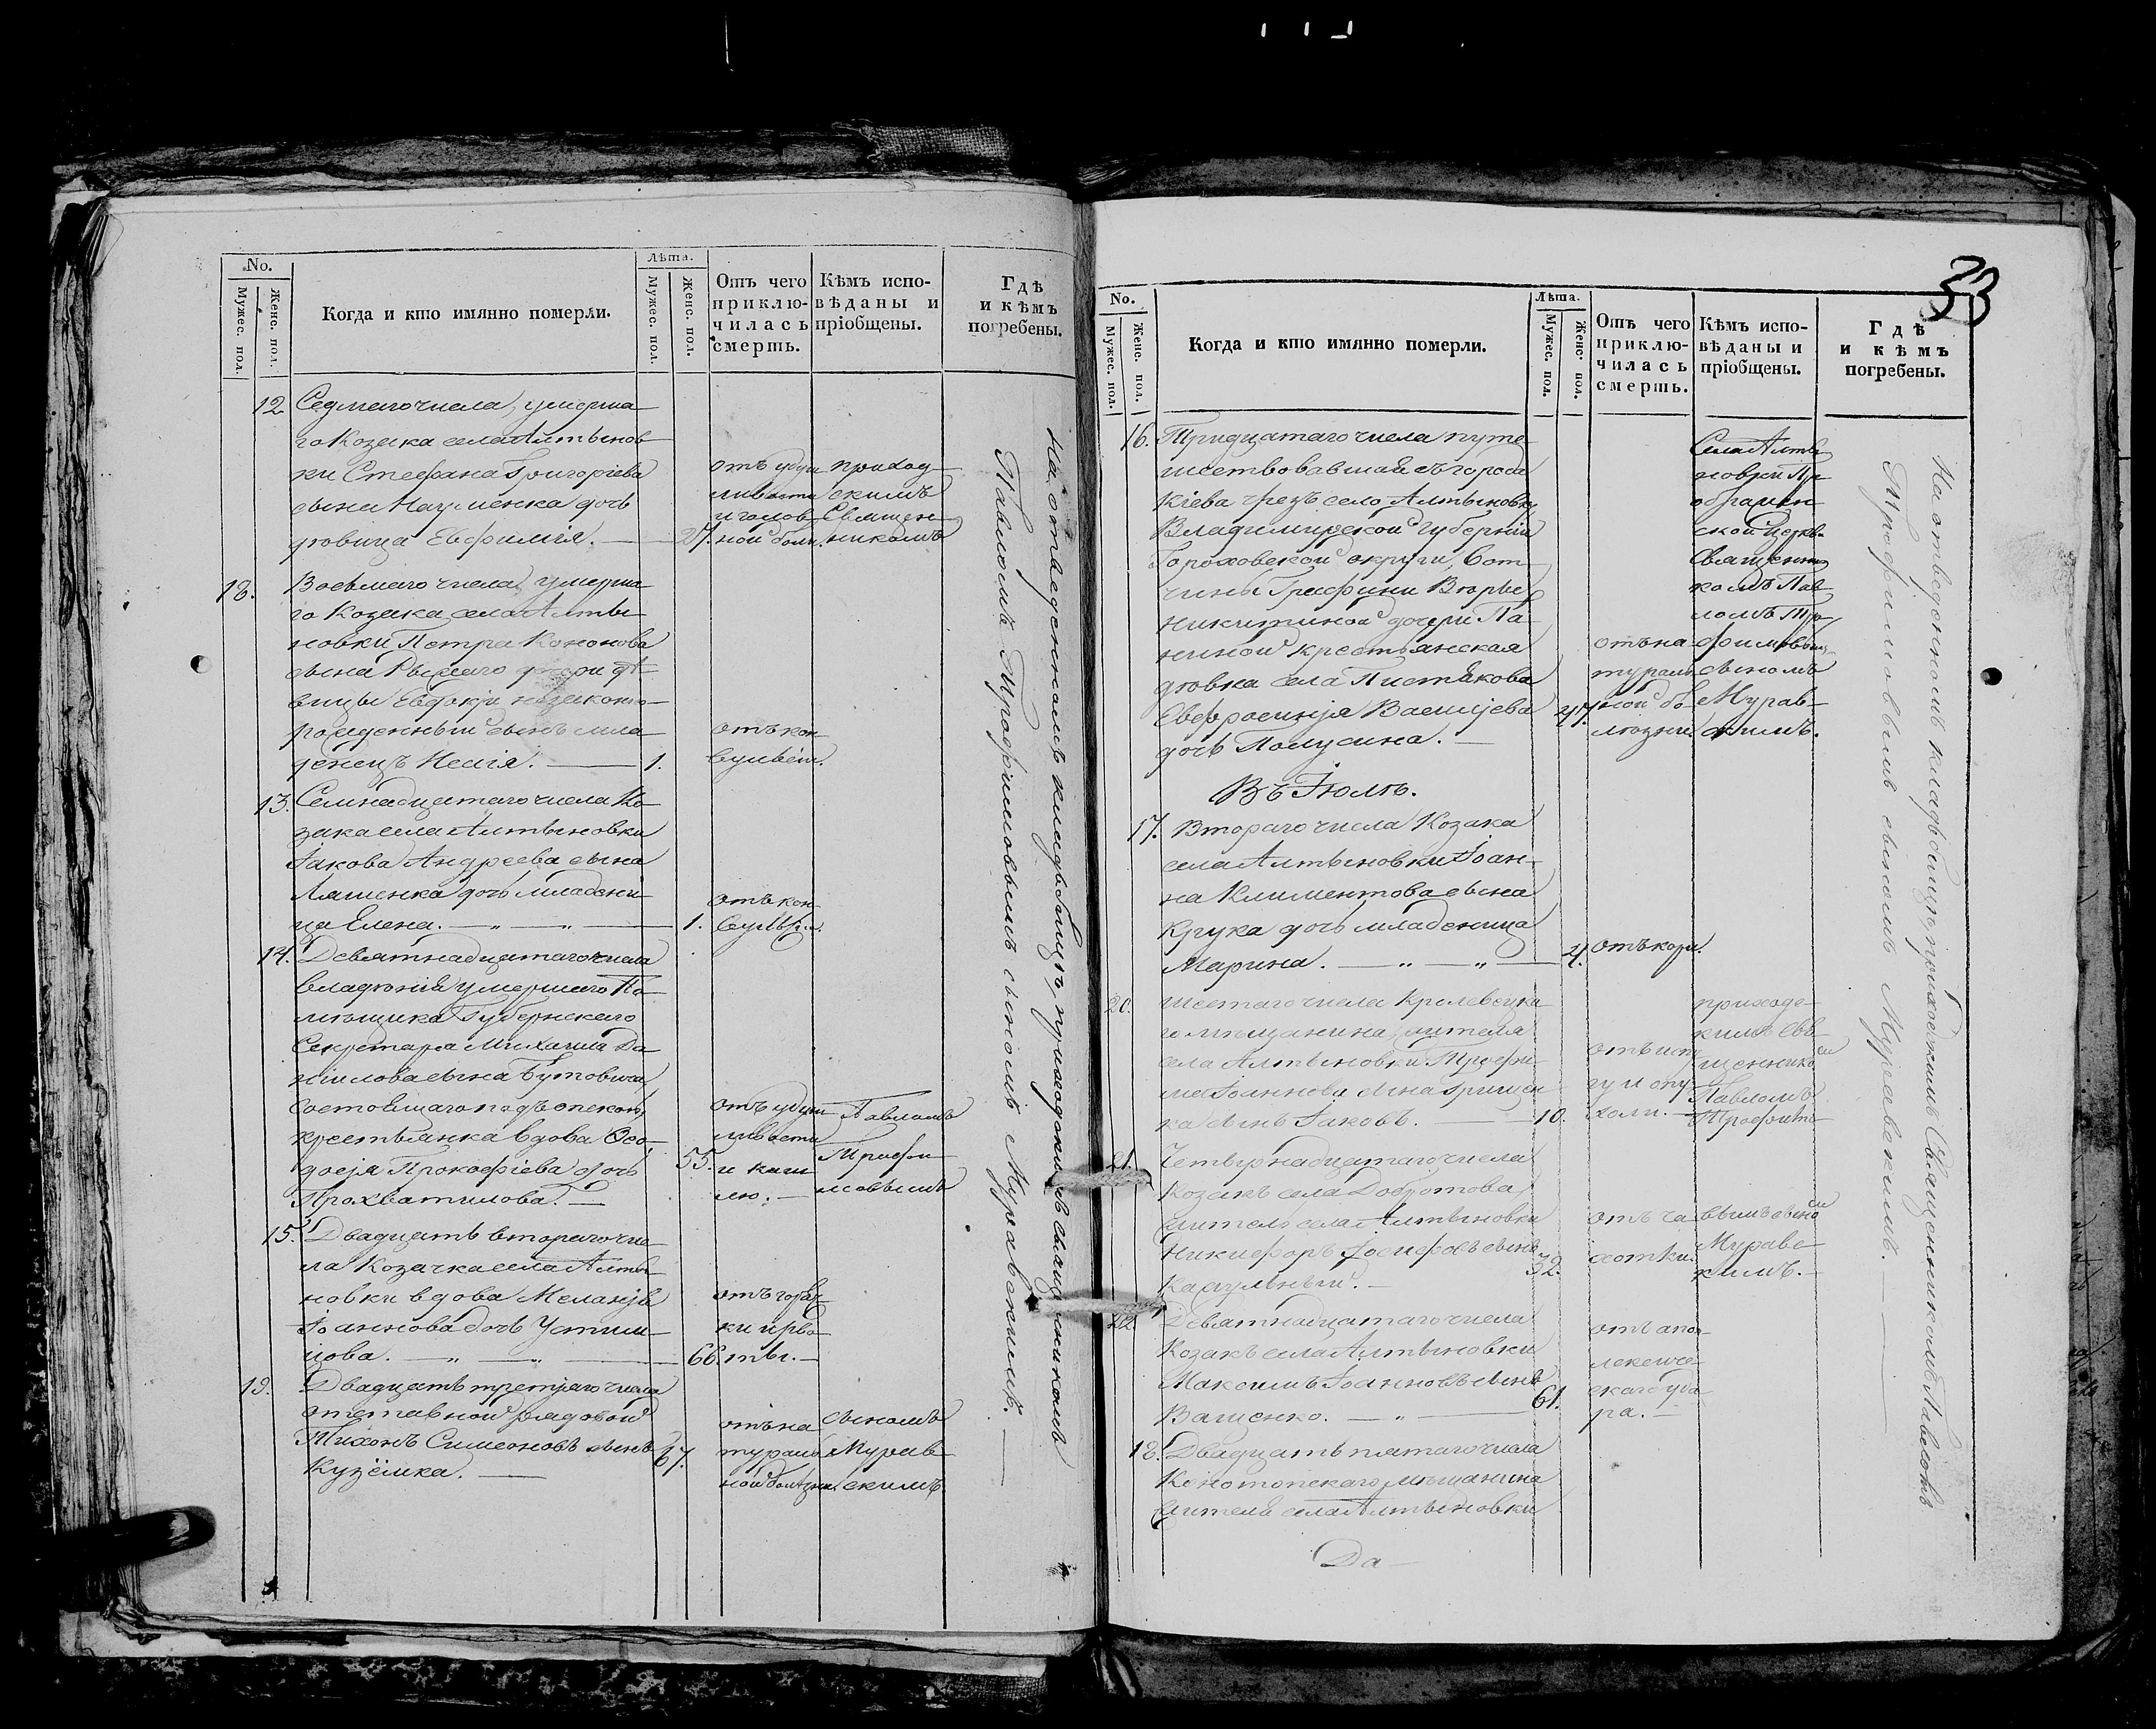 No.
Мужес. пол.
Женс. пол.
Когда и кто имянно померли.
Лѣта.
Мужес. пол.
Женс. пол.
Отъ чего
приклю-
чилась
смерть.
Кѣмъ испо-
вѣданы и
пріобщены.
Гдѣ
и кѣмъ
погребены.
12 Седмаго числа, умерша
го Козака села Алтынов
ки Стефана Григоріева
сына Науменка дочь
дѣвица Евфимія. — 27.
отъ уду
шливости
и голов
ной боли.
приход
скимъ
Священ
никомъ
18. Восьмаго числа, умерша
го Козака села Алты
новки Петра Кононова
сына дочери дѣ
вицы Евдокіи незаконо
рожденный сынъ мла
денецъ — 1.
отъ кон
вульсіи.
13. Семнадцатаго числа Ко
зака села Алтыновки
Іакова Андреева сына
Ляшенка дочь младени
ца Елена. — „ — „ — 1.
отъ кон
вульсіи.
14. Девятнадцатаго числа
владѣнія умершаго По
мѣщика Губернскаго
Секретаря Михаила Да
ніилова сына Бутовича,
состоящаго подъ опекою,
крестьянка вдова Ѳео
досія Прокофіева дочь
Прохватилова. — 55.
отъ удуш
ливости
и каш
лю. —
Павломъ
Трофи
мовымъ
15. Двадцать втораго чис
ла Козачка села Алты
новки вдова Меланія
Іоаннова дочь Устим
цова. — „ — „ — 66.
отъ горяч
ки и рво
ты. —
19. Двадцать третяго числа
отставной рядовой
Тихонъ Симеоновъ сынъ 67.
Кузёмка. —
отъ на
тураль
ной болѣзни.
сыномъ
Мурав
скимъ
На отведенномъ кладбищѣ, приходскимъ Священникомъ
Павломъ Трофимовымъ сыномъ Муравскимъ. —
33
No.
Мужес. пол.
Женс. пол.
Когда и кто имянно померли.
Лѣта.
Мужес. пол.
Женс. пол.
Отъ чего
приклю-
чилась
смерть.
Кѣмъ испо-
вѣданы и
пріобщены.
Гдѣ
и кѣмъ
погребены.
16. Тридцатаго числа путе
шествовавшая съ города
Кіева чрезъ село Алтыновку
Владимирской губерніи
Гороховской округи, Вот
чины Графини
Никитиной дочери Па
ниной крестьянская
дѣвка села Пистякова
Евфросинія Васильева 47.
дочь Полусина. —
отъ на
тураль
ной бо
лѣзни
Села Алты
новки Пр
ображен
ской Церкви
Священни
комъ Пав
ломъ Тро
фимовым
сыномъ
Мурав
скимъ.
Въ Іюлѣ.
17. Втораго числа Козака
села Алтыновки Іоан
на Климентова сына
Крука дочь младеница
Марина. — „ — „ — 4.
отъ кори.
20. Шестаго числа Кролевецка
го мѣщанина жителя
села Алтыновки Трофи
ма Іоаннова сына Грищен
ка сынъ Іаковъ. — 10.
опу
холи. —
приходс
кимъ Свя
щенником
Павломъ
Трофимо
21. Четырнадцатаго числа
Козакъ села Добротова,
житель села Алтыновки
Никифоръ Іосифовъ сынъ 32.
Караульный. —
отъ ча
хотки.
вымъ сыном
Муравс
кимъ. —
22 Девятнадцатаго числа
Козакъ села Алтыновки
Максимъ Іоанновъ сынъ 61.
Ващенко. — „ —
отъ апоп
лексиче
скаго уда
ра. —
18. Двадцать пятаго числа
Конотопскаго мѣщанина
жителя села Алтыновки
Да-
На отведенномъ кладбищѣ, приходскимъ Священникомъ Павломъ
Трофимовымъ сыномъ Муравскимъ. —